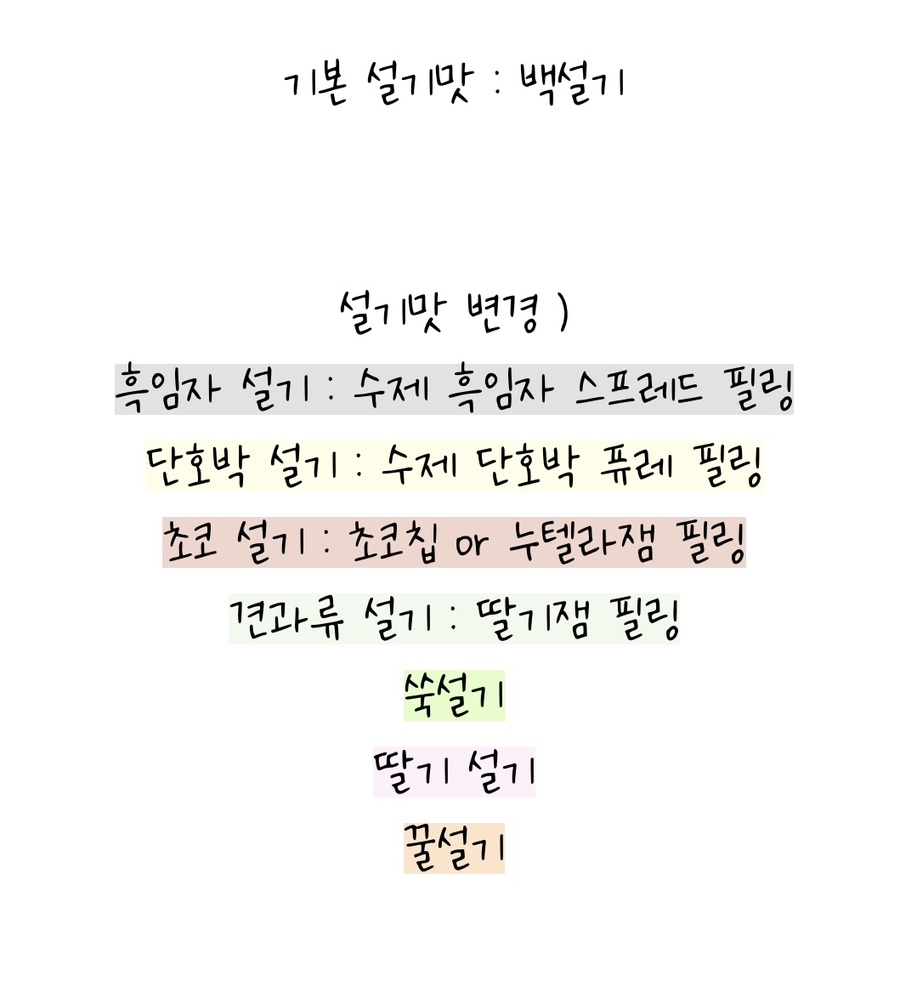 기본 설기맛 : 백설기
설기맛 변경 )
흑임자 설기 : 수제 흑임자 스프레드 필링
단호박 설기 : 수제 단호박 퓨레 필링
초코 설기 : 초코칩 or 누텔라잼 필링
견과류 설기 : 딸기잼 필링
쑥설기
딸기 설기
꿀설기